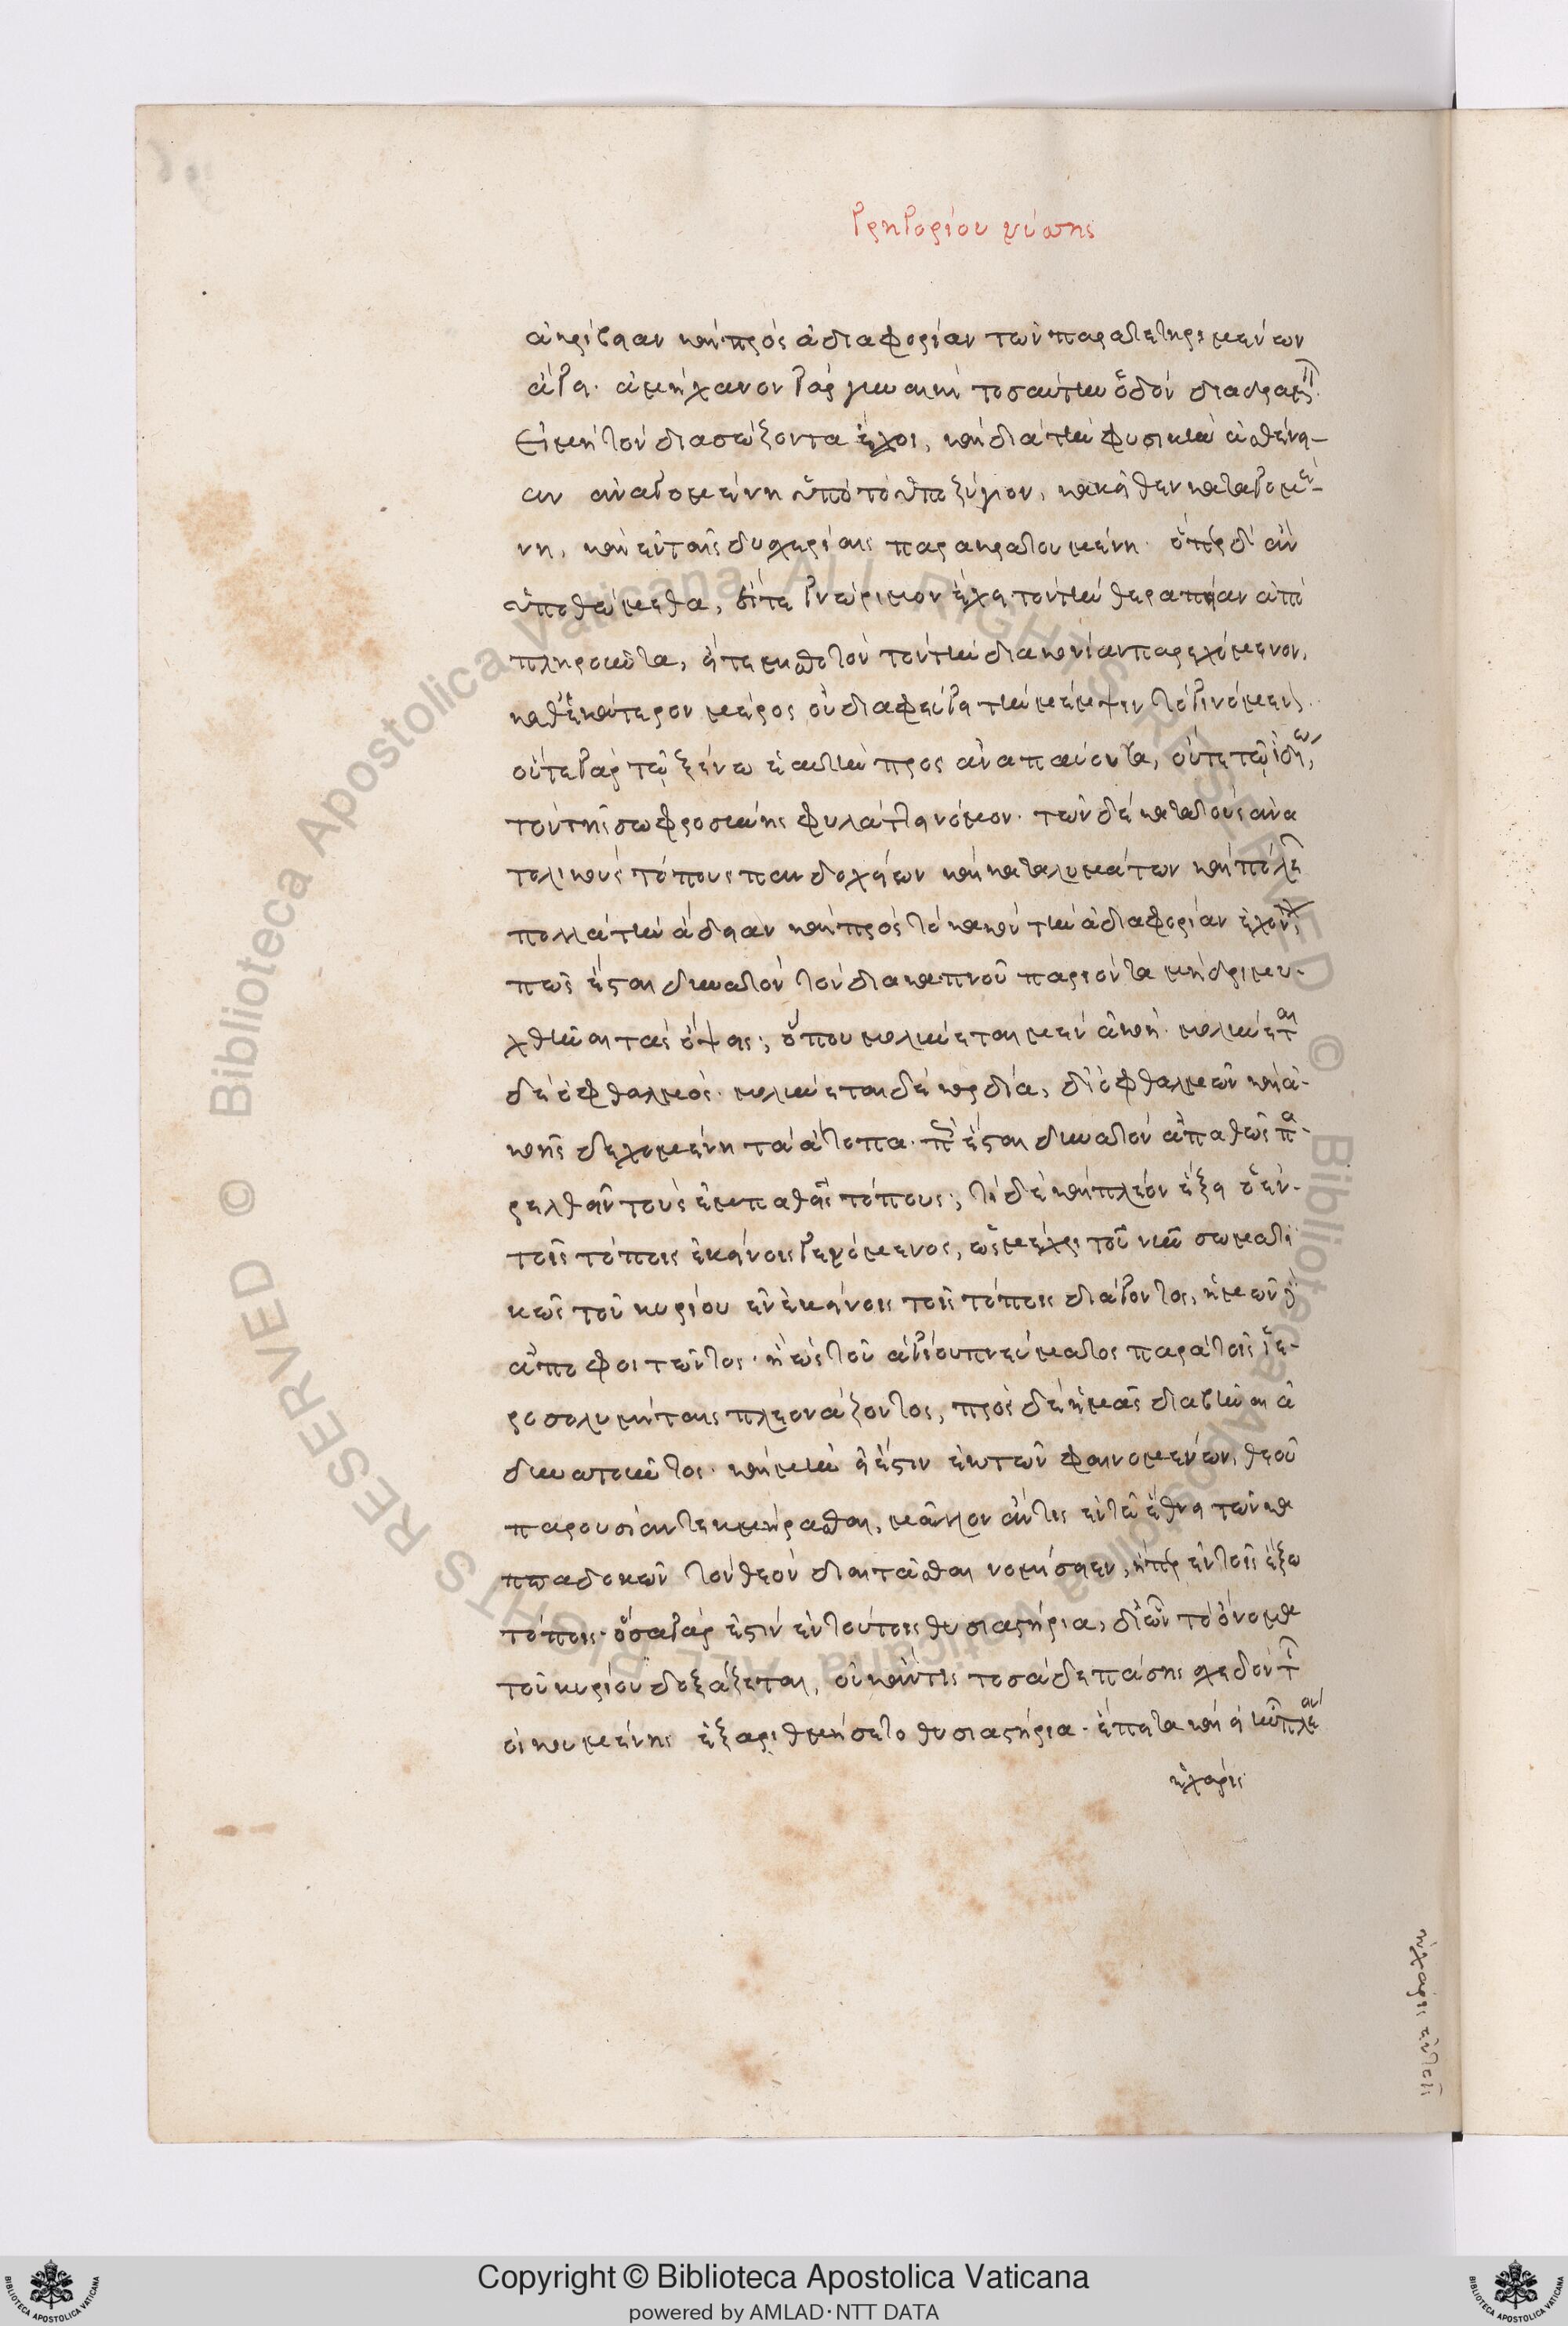 Γρηγορίου νύσσης
ἀκρίβειαν καὶ πρὸς ἀδιαφορίαν τῶν παρατετηριμένων
ἄγει. ἀμήχανον γὰρ γυναικὶ τοσαύτην ὁδὸν διαδραμεῖν.
εἰ μὴ τὸν διασώζοντα ἔχοι, καὶ διὰ τὴν φυσικὴν ἀσθένει-
αν ἀναγομένη ὑπὸ τὸ ὑποζύγιον, κακεῖθεν καταγομέ-
νη, καὶ ἐν ταῖς δυσχερίαις παρακρατουμένη. ὅπερ δ' ἂν
ὑποθώμεθα, εἴτε γνώριμον ἔχει τὸν τὴν θεραπείαν ἀπο
πληροῦντα, εἴτε μισθωτὸν τὸν τὴν διακονίαν παρεχόμενον,
καθ' ἑκάτερον μέρος οὐ διαφεύγει τὴν μέμψιν τὸ γινόμενον.
οὔτε γὰρ τῷ ξένω ἑαυτὴν προσαναπαύουσα, οὔτε τῷ ἰδίω,
τὸν τῆς σωφροσύνης φυλάττει νόμον. τῶν δὲ κατὰ τοὺς ἀνα
τολικοὺς τόπους πανδοχείων καὶ καταλυμάτων καὶ πόλεων
πολλὰ τὴν ἄδειαν καὶ πρὸς τὸ κακὸν τὴν ἀδιαφορίαν ἐχόντων,
πῶς ἔσται δυνατὸν τὸν διὰ καπνοῦ παριόντα μὴ δριμυ-
χθῆναι τὰς ὄψεις; ὅπου μολύνεται μὲν ἀκοὴ. μολύνεται
δὲ ὀφθαλμός. μολύνεται δὲ καρδία, δι' ὀφθαλμῶν καὶ ἀ-
κοῆς δεχομένη τὰ ἄτοπα. πῶς ἔσται δυνατὸν ἀπαθῶς πα-
ρελθεῖν τοὺς ἐμπαθεῖς τόπους; τί δὲ καὶ πλέον ἕξει ὁ ἐν
τοῖς τόποις ἐκείνοις γενόμενος, ὡς μέχρι τοῦ νῦν σωματι
κῶς τοῦ κυρίου ἐν ἐκείνοις τοῖς τόποις διάγοντος, ἡμῶν δὲ
ἀποφοιτῶντος. ἢ ὡς τοῦ ἁγίου πνεύματος παρὰ τοῖς ἱε-
ροσολυμίταις πλεονάζοντος, πρὸς δὲ ἡμᾶς διαβῆναι ἀ
δυνατοῦντος. καὶ μὴν εἰ ἔστιν ἐκ τῶν φαινομένων θεοῦ
παρουσίαν τεκμήρασθαι, μᾶλλον ἄν τις ἐν τῷ ἔθνει τῶν κα
ππαδοκῶν τὸν θεὸν διαιτᾶσθαι νομήσειεν, ἤπερ ἐν τοῖς ἔξω
τόποις. ὅσα γάρ ἐστιν ἐν τούτοις θυσιαστήρια, δι' ὧν τὸ ὄνομα
τοῦ κυρίου δοξάζεται, οὐκ ἄν τις τοσάδε πάσης σχεδὸν τῆς
οἰκουμένης ἐξαριθμήσετο θυσιαστήρια. ἔπειτα καὶ εἰ ἦν πλέων
ἡ χάρις
ἡ χάρις ἐν τοῖς